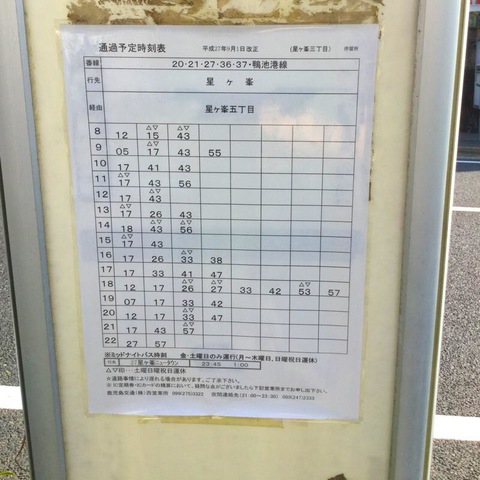 通過予定時刻表 平成27年9月1日改正 (星ヶ峯三丁目) 停留所
番線 20・21・27・36・37・鴨池港線
行先 星ヶ峯
経由 星ヶ峯五丁目
8 12 △▽15 △▽43
9 05 △▽17 △▽43 55
10 17 41 43
11 △▽17 43 56
12 17 △▽43
13 △▽17 26 43
14 18 △▽43 △▽56
15 △▽17 43
16 17 26 △▽33 38
17 17 33 41 47
18 12 17 △▽26 △▽27 33 42 △▽53 57
19 07 17 33 42
20 12 17 △▽33 △▽47
21 17 43 △▽57
22 17 57
※ミッドナイトバス時刻 金・土曜日のみ運行(月～木曜日、日曜祝日運休)
行先 27星ヶ峯ニュータウン 23:45 1:00
△▽印・・・土曜日曜祝日運休
☆道路事情により遅れる場合があります。ご了承下さい。
鹿児島交通(株)西営業所